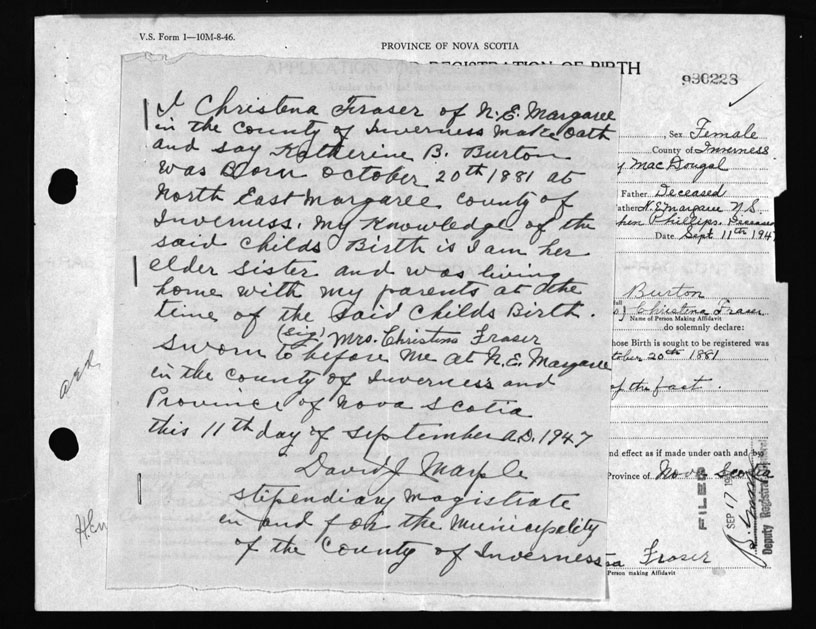 V.S. Form 1—10M-8-46.
PROVINCE OF NOVA SCOTIA
APPLICATION FOR REGISTRATION OF BIRTH
930228
I Christena Fraser of N.E. Margaree
in the County of Inverness make oath
and say Katherine B. Burton
was Born October 20th 1881 at
North East Margaree County of
Inverness. My Knowledge of the
said childs Birth is I am her
elder sister and was living
home with my parents at the
time of the said childs Birth.
(sig) Mrs. Christena Fraser
Sworn to before me at N.E. Margaree
in the County of Inverness and
Province of Nova Scotia
this 11th day of September A.D. 1947
David J Marple
Stipendiary Magistrate
in and for the Municipality
of the County of Inverness
, Sex Female
County of Inverness
MacDougal
Father Deceased
N.E. Margaree N.S.
Phillips, Deceased
Date Sept 11th 1947
Burton
Christena Fraser
Name of Person Making Affidavit
do solemnly declare:
hose Birth is sought to be registered was
tober 20th 1881
of the fact.
nd effect as if made under oath and by
Province of Nova Scotia
FILED
SEP 17
Deputy Registrar
Fraser
Person making Affidavit